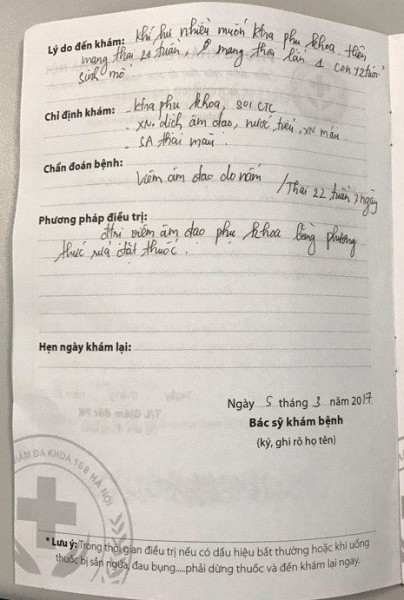 Lý do đến khám: khí hư nhiều muốn ktra phụ khoa. Hiện
mang thai 22 tuần, mang thai lần 1 con 12 tuổi
sinh mổ
Chỉ định khám: - ktra phụ khoa, soi CTC
- XN. dịch âm đạo, nước tiểu, XN máu
- SA thai màu
Chẩn đoán bệnh:
Viêm âm đạo do nấm / Thai 22 tuần 3 ngày
Phương pháp điều trị:
đtrị viêm âm đạo phụ khoa bằng phương
thức rửa đặt thuốc.
Hẹn ngày khám lại:
Ngày 5 tháng 3 năm 2017
Bác sỹ khám bệnh
(ký, ghi rõ họ tên)
ĐA KHOA 168 HÀ NỘI
* Lưu ý: Trong thời gian điều trị nếu có dấu hiệu bất thường hoặc khi uống
thuốc bị sẩn ngứa, đau bụng.....phải dừng thuốc và đến khám lại ngay.